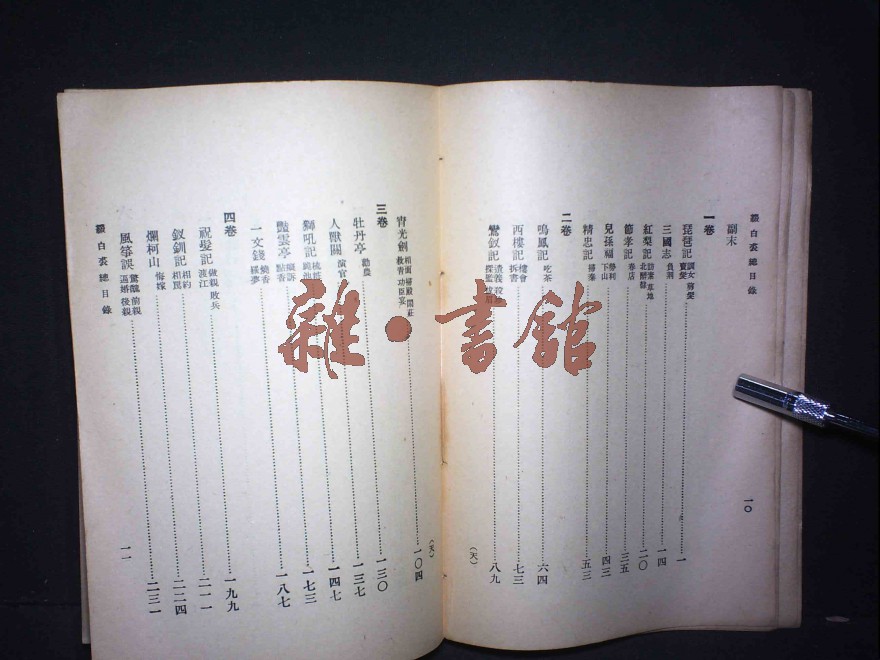 綴白裘總目錄
一〇
副末
一卷
琵琶記 訓女 剪髮 賣髮 一
三國志 負荊 一四
紅梨記 訪素 草地 北醉隸 二〇
節孝記 春店 三五
兒孫福 勢利 下山 四三
精忠記 掃秦 五三
二卷
鳴鳳記 吃茶 六四
西樓記 樓會 拆書 七三
鸞釵記 遣義 八九
(天)
宵光劍 相面 掃殿 鬧莊 救青 功臣宴 一〇四
(天)
三卷 一三〇
牡丹亭 勸農 一三七
人獸關 演官 一四七
獅吼記 梳粧 跪池 一七三
艷雲亭 癡訴 點香 一八七
一文錢 燒香 羅夢
四卷 一九九
祝髮記 做親 敗兵 渡江 二一一
釵釧記 相約 相罵 二二四
爛柯山 悔嫁 二三一
風箏誤 驚醜 前親 逼婚 後親
綴白裘總目錄
一一
雜·書館